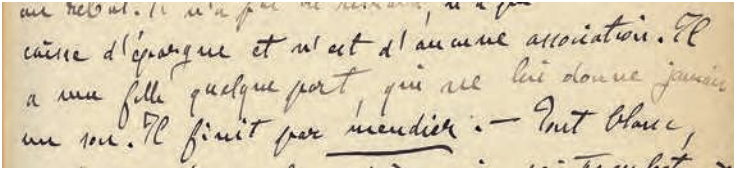 au rebut. Il n'a pas de
caisse d'épargne et n'est d'aucune association. Il
a une fille quelque part, qui ne lui donne jamais
un sou. Il finit par mendier. — Tout blanc,